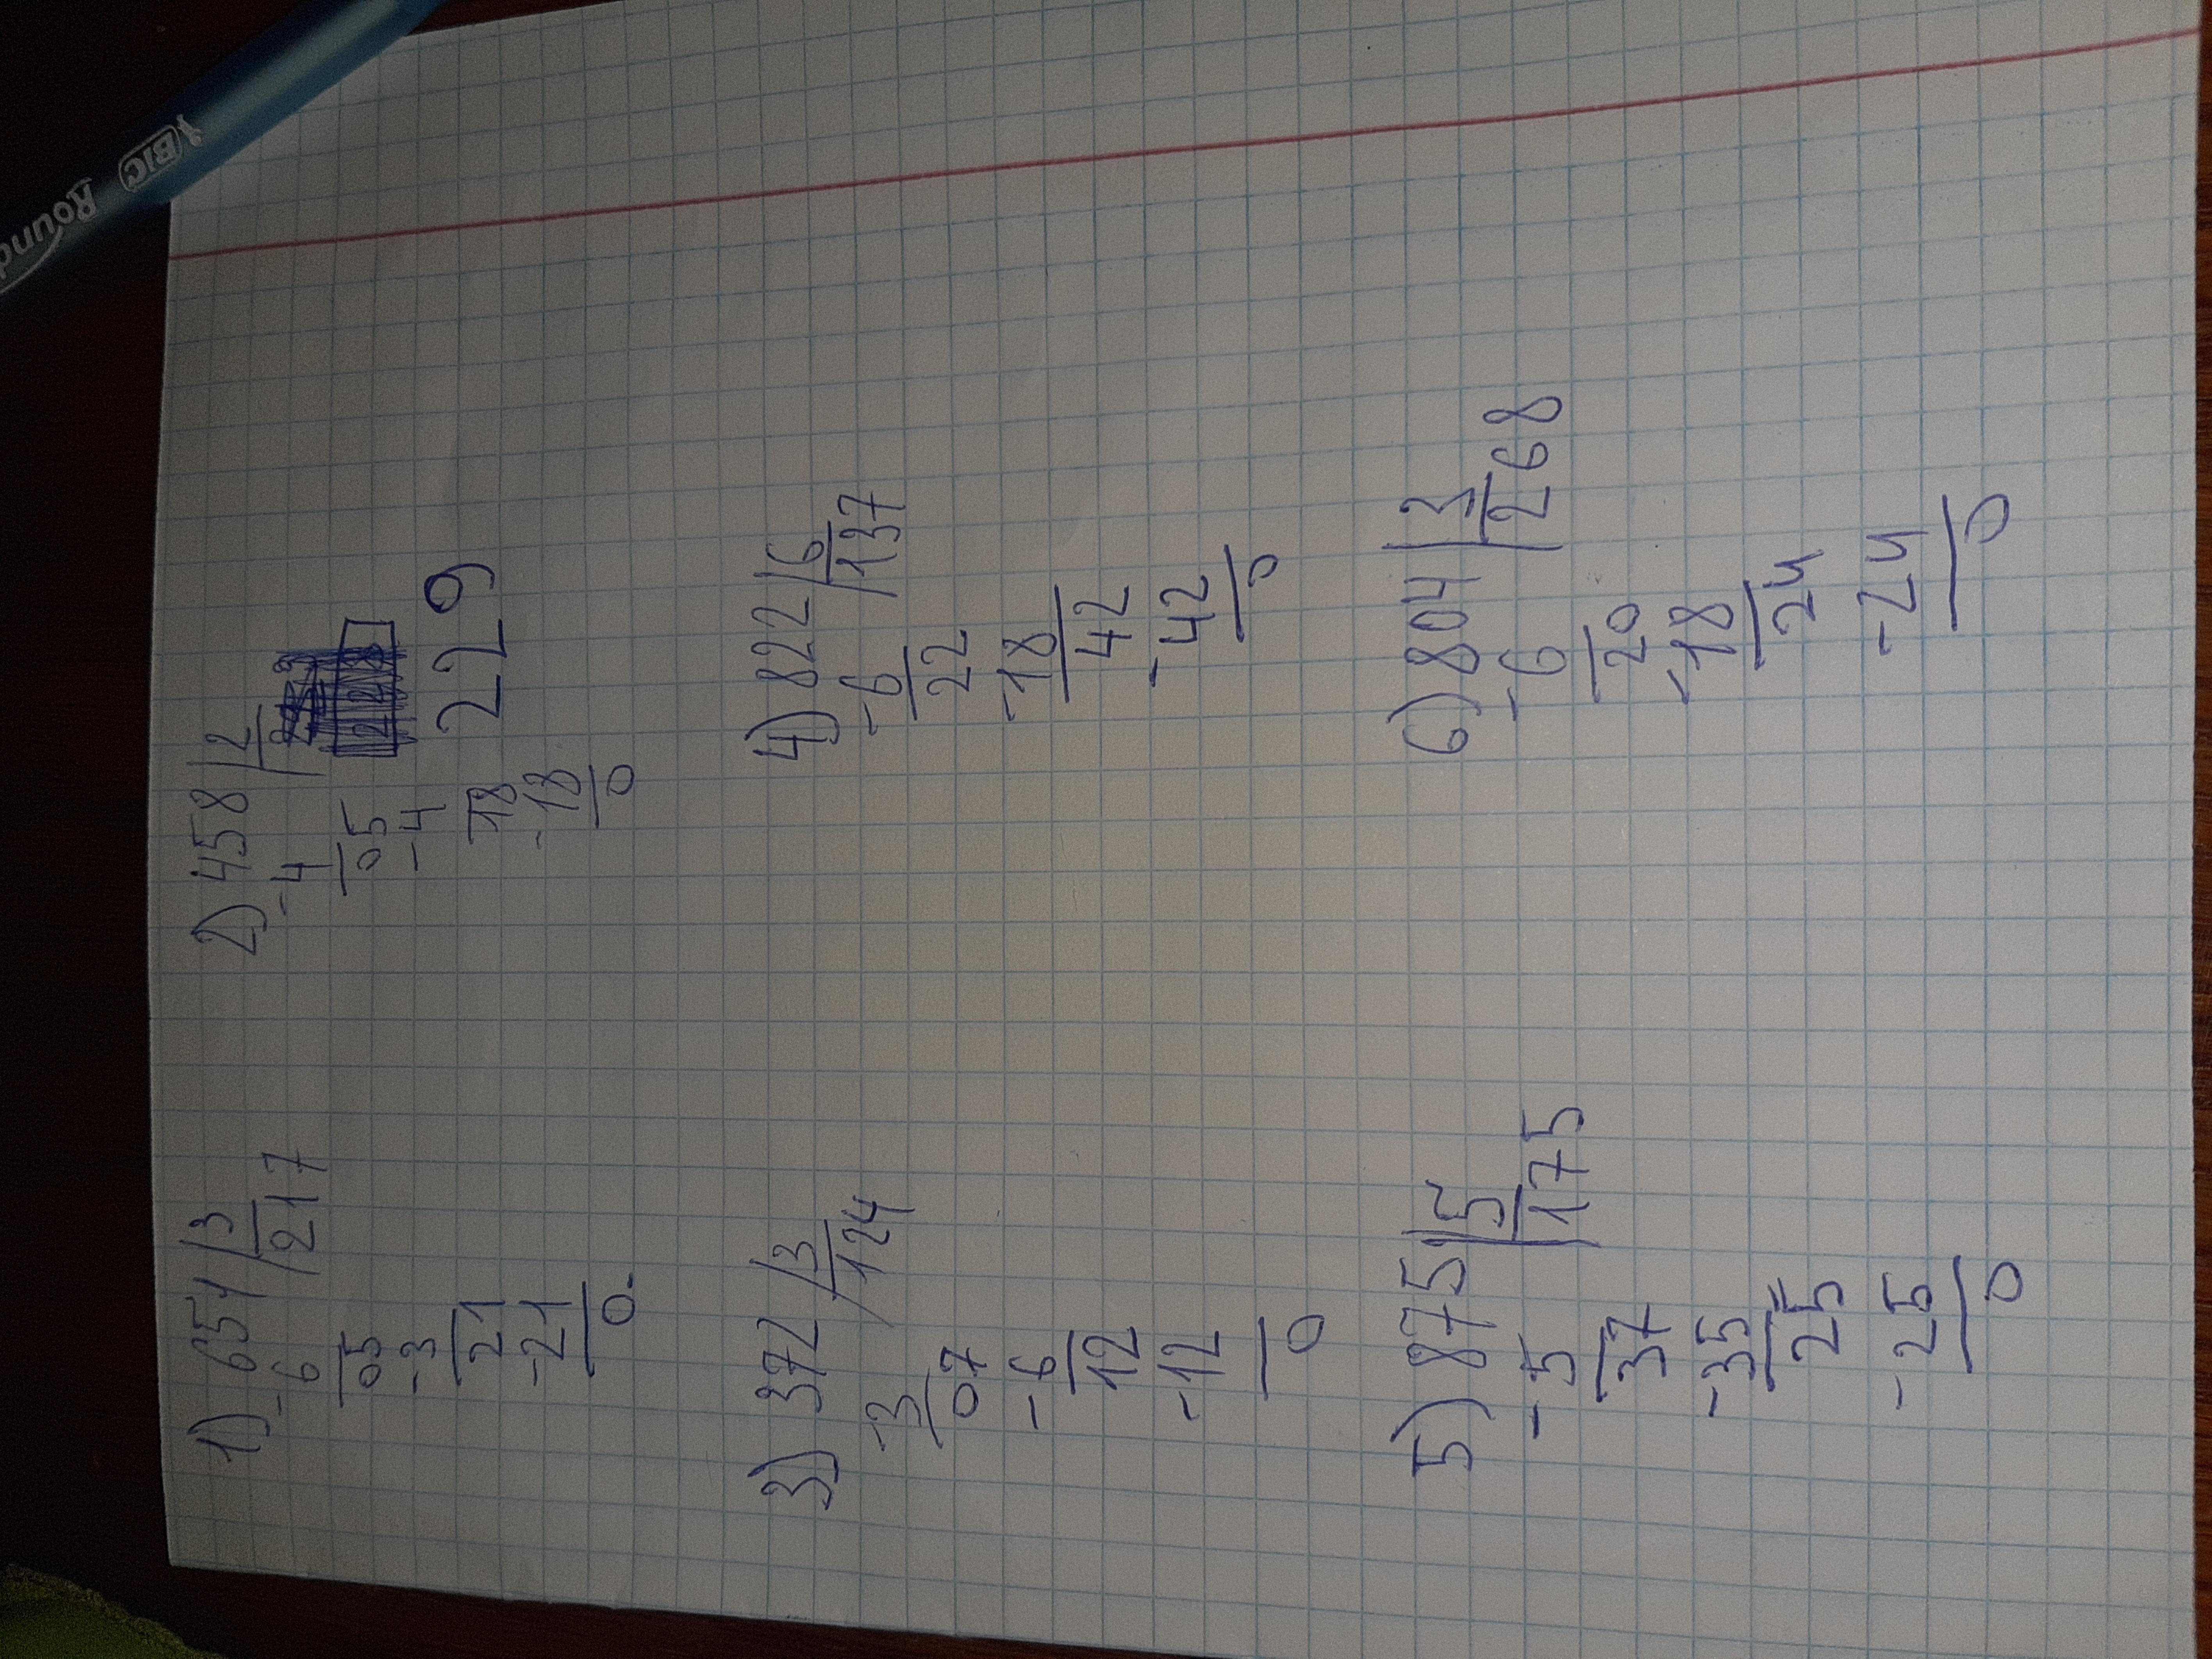 1) 651 | 3
- 6 | 217
05
- 3
21
- 21
0.
2) 458 | 2
- 4
05
- 4
229
18
- 18
0
3) 372 | 3
- 3 | 124
07
- 6
12
- 12
0
4) 822 | 6
- 6 | 137
22
- 18
42
- 42
0
5) 875 | 5
- 5 | 175
37
- 35
25
- 25
0
6) 804 | 3
- 6 | 268
20
- 18
24
- 24
0
BIC
Round